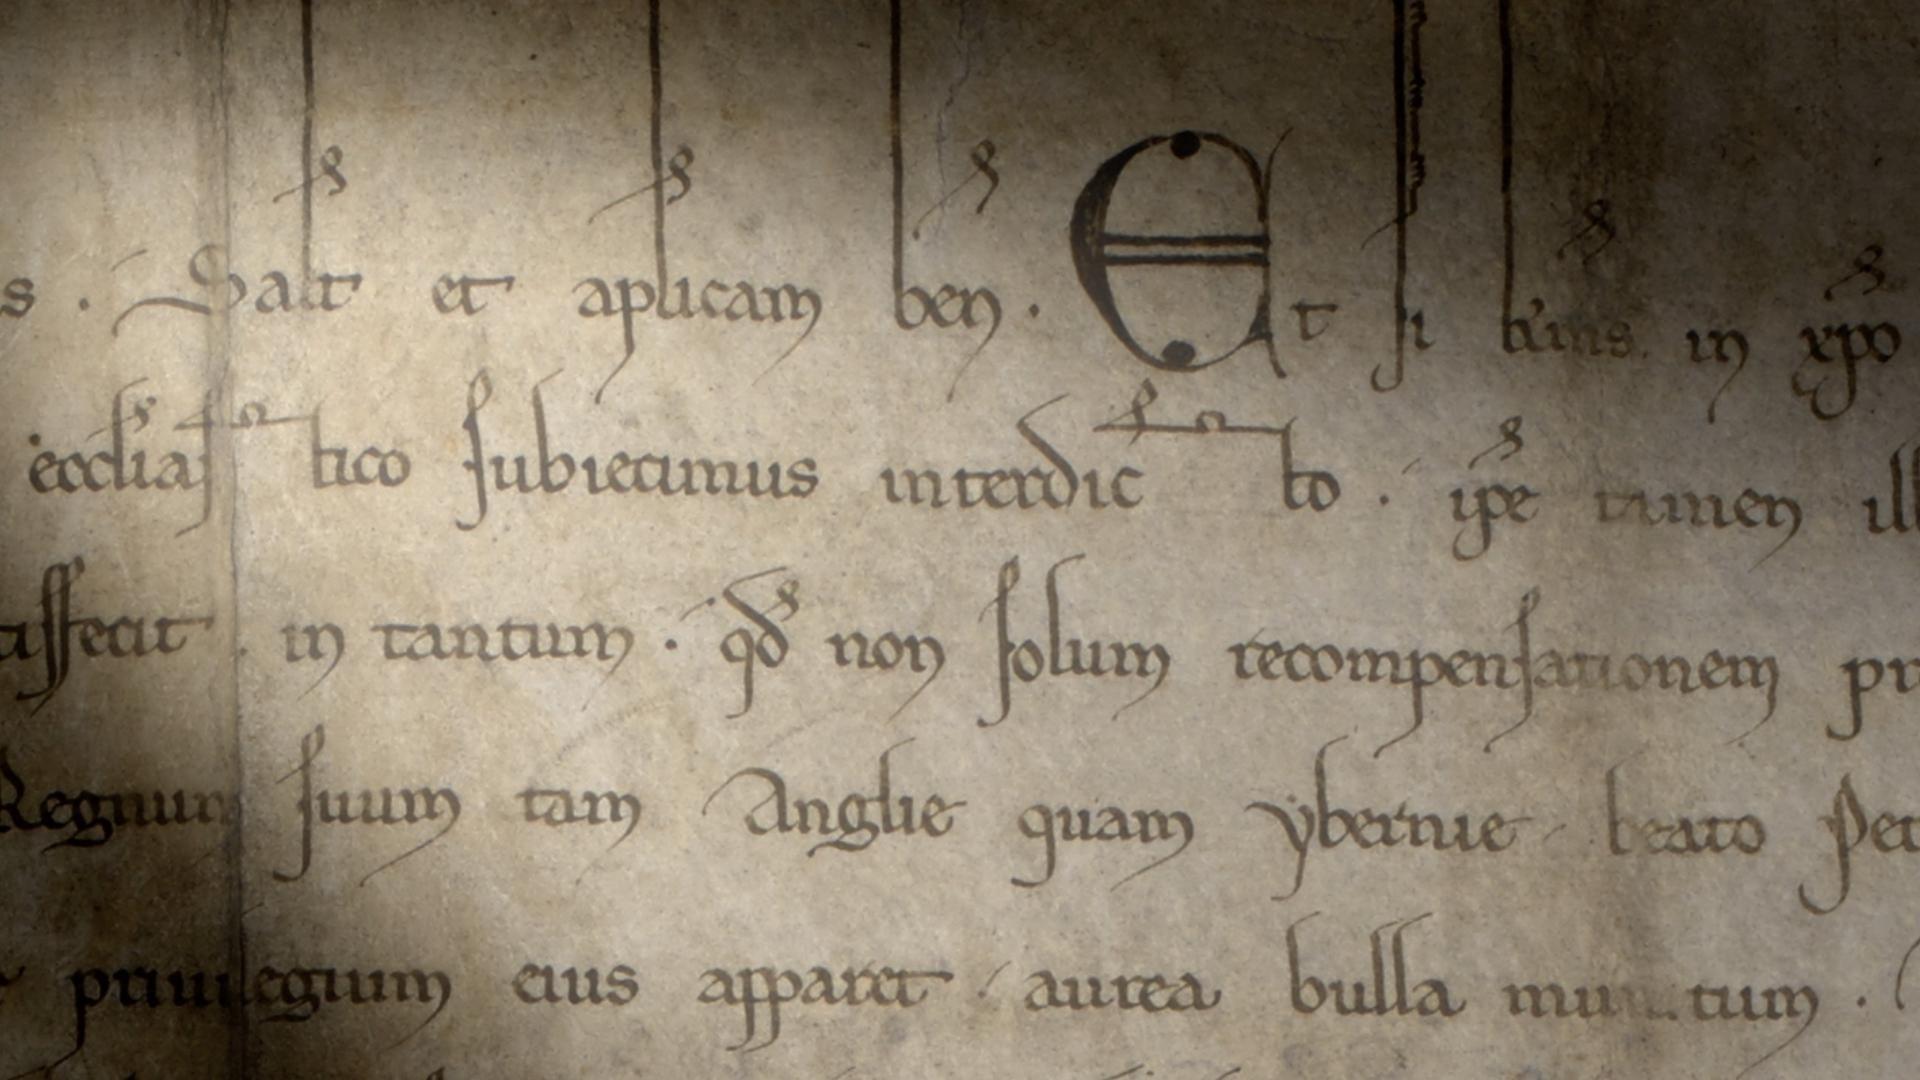 s . Salt et aplicam ben . Et si kms in xpo
eccliastico subiecimus interdicto . ipe tamen ill
tisfecit in tantum . qd non solum recompensationem pr
Regnum suum tam Anglie quam ybernie beato Pet
privilegium eius apparet . aurea bulla munitum .